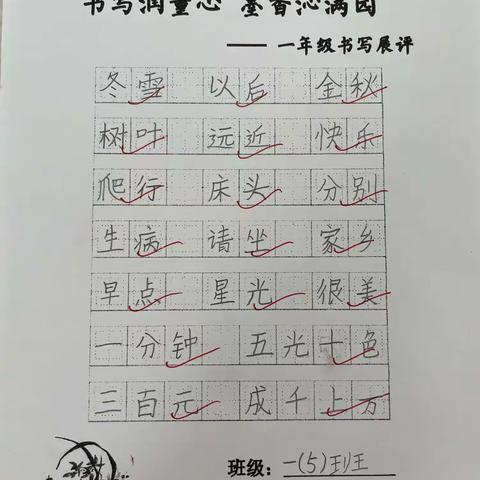 书写润童心 墨香沁满园
—— 一年级书写展评
冬雪 以后 金秋
树叶 远近 快乐
爬行 床头 分别
生病 请坐 家乡
早点 星光 很美
一分钟 五光十色
三百元 成千上万
班级：一(5)班